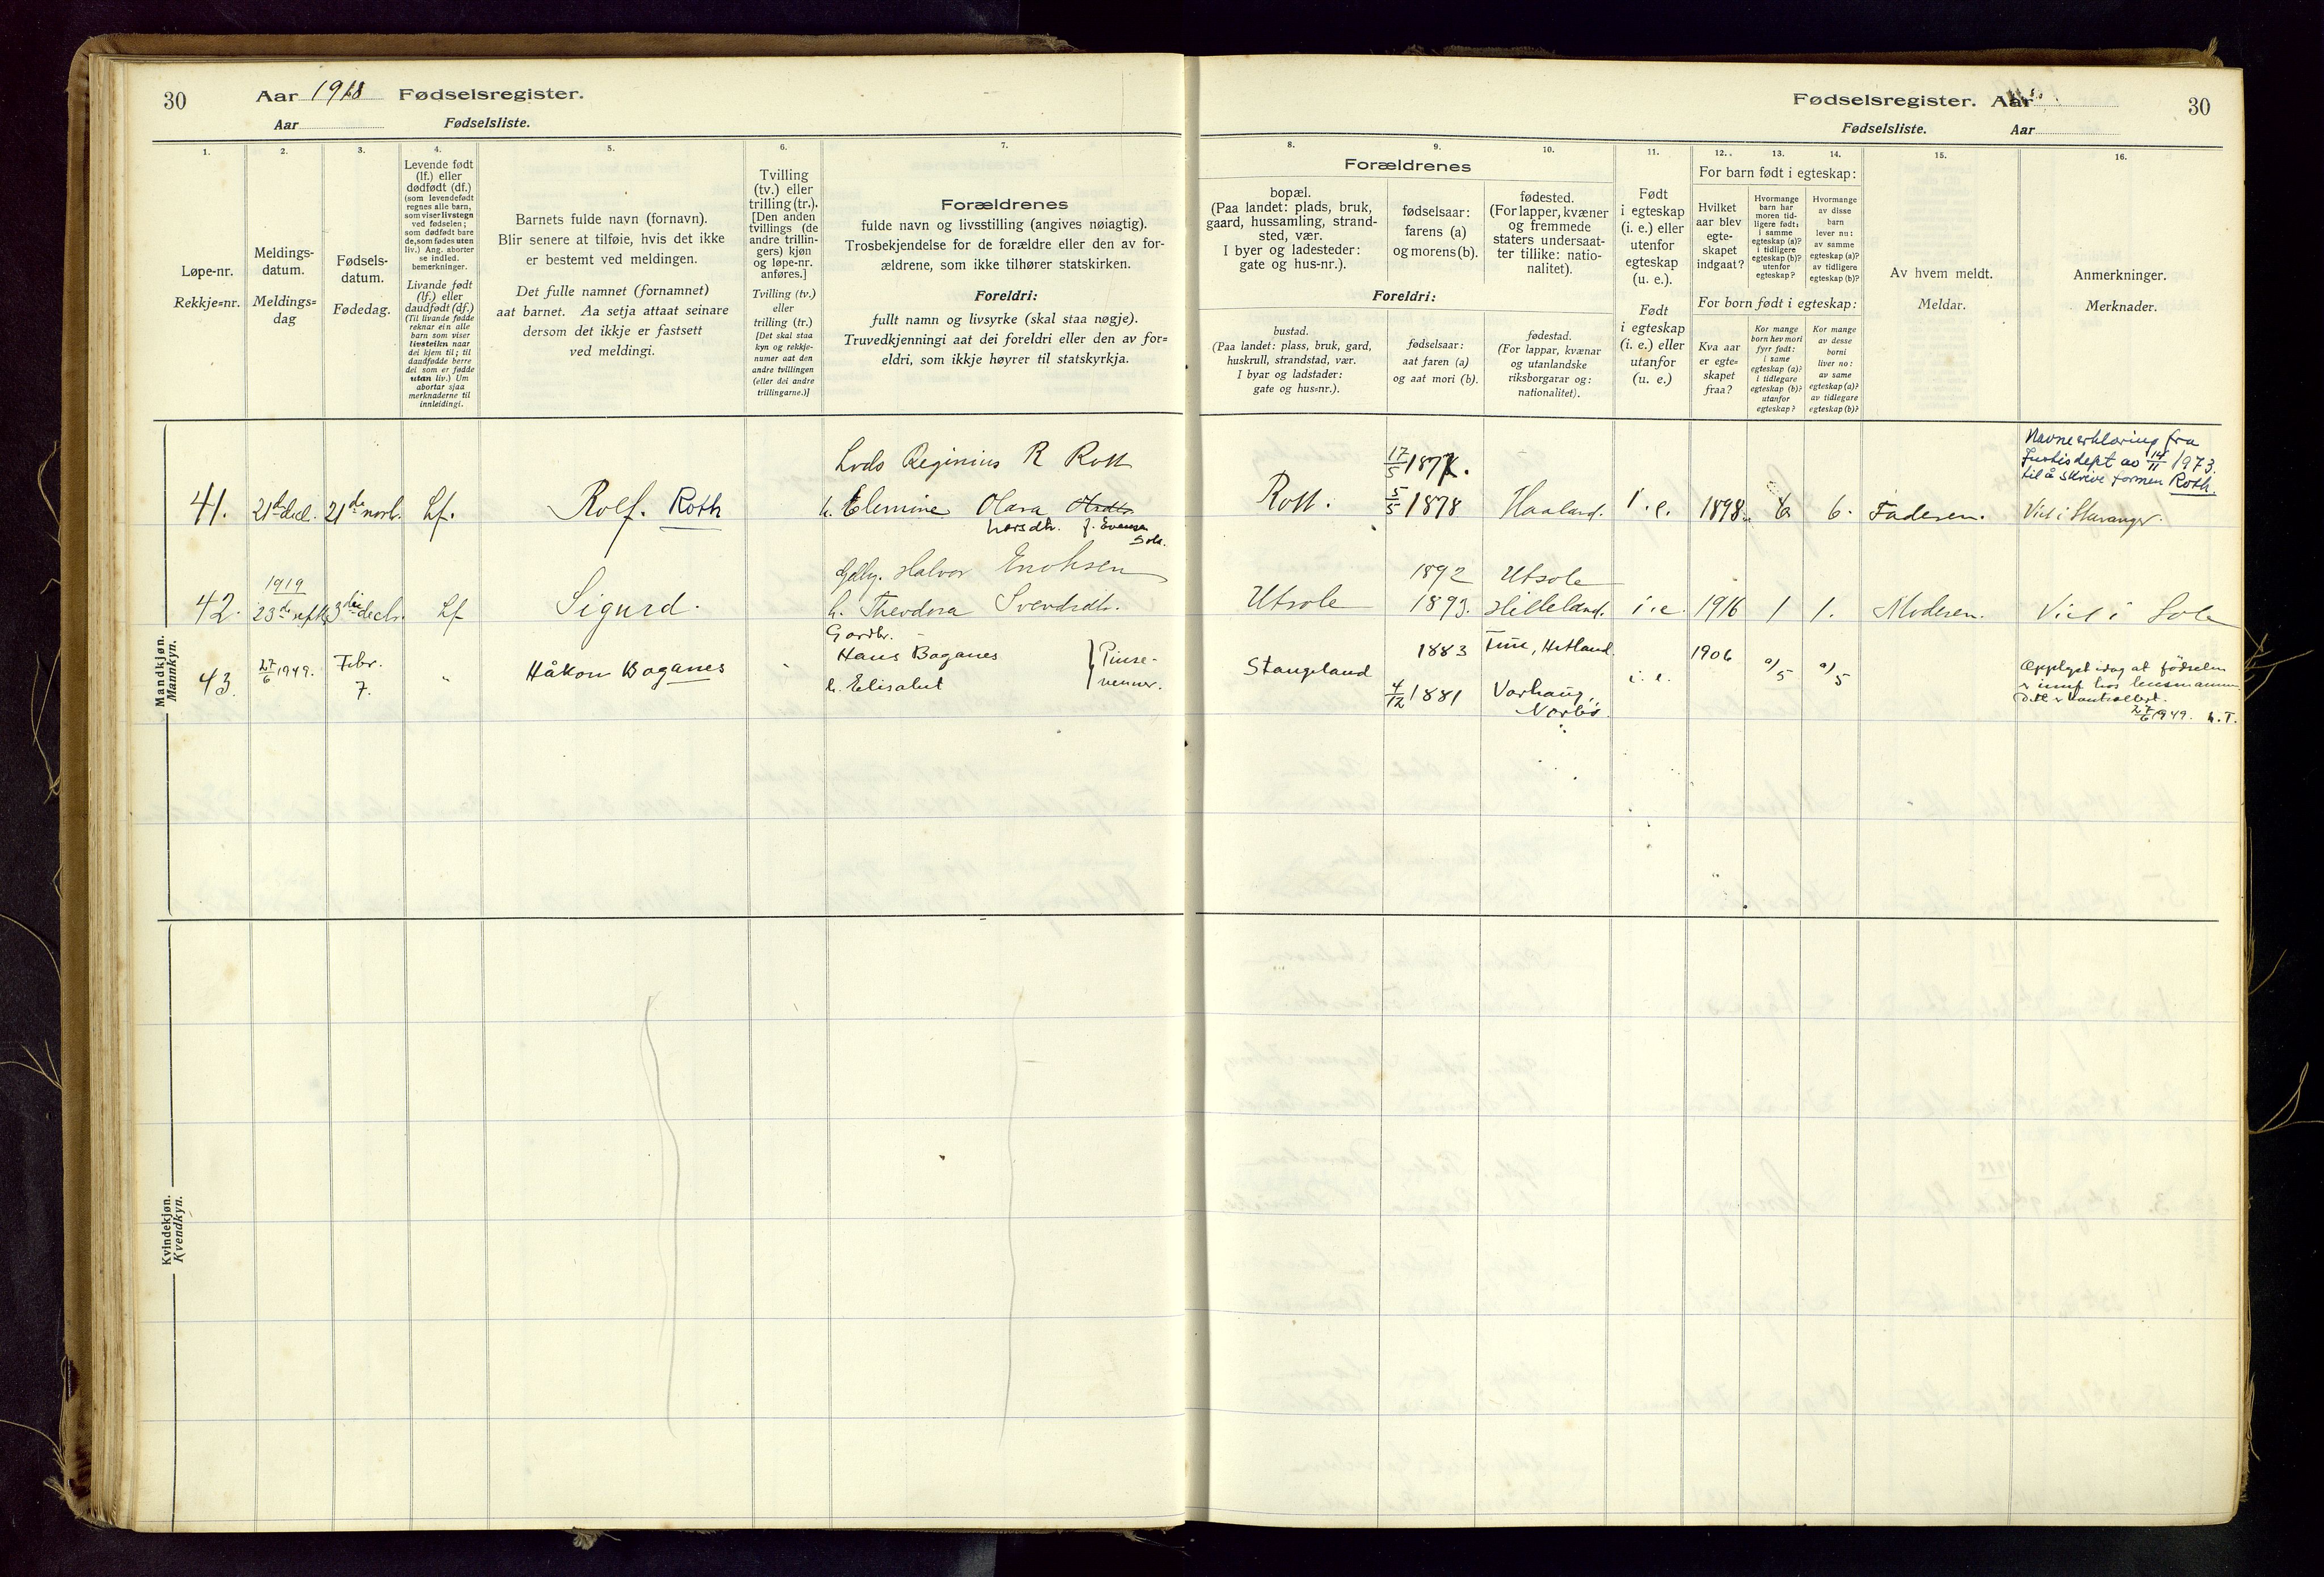 30
Aar 1918 Fødselsregister.
Aar Fødselsliste.
1.
Løpe-nr.
Rekkje=nr.
2.
Meldings-
datum.
Meldings=
dag
3.
Fødsels-
datum.
Fødedag.
4.
Levende født
(lf.) eller
dødfødt (df.)
(som levendefødt
regnes alle barn,
som viser livstegn
ved fødselen;
som dødfødt bare
de, som fødes uten
liv.) Ang. aborter
se indled.
bemerkninger.
Livande født
(lf.) eller
daudfødt (df.)
(Til livande fødde
reknar ein alle
barn som viser
livsteikn naar
dei kjem til; til
daudfødde berre
dei som er fødde
utan liv.) Um
abortar sjaa
merknaderne til
innleidingi.
5.
Barnets fulde navn (fornavn).
Blir senere at tilføie, hvis det ikke
er bestemt ved meldingen.
Det fulle namnet (fornamnet)
aat barnet. Aa setja attaat seinare
dersom det ikkje er fastsett
ved meldingi.
6.
Tvilling
(tv.) eller
trilling (tr.).
[Den anden
tvillings (de
andre trillin-
gers) kjøn
og løpe-nr.
anføres.]
Tvilling (tv.)
eller
trilling (tr.)
[Det skal staa
kyn og rekkje-
numer aat den
andre tvillingen
(eller dei andre
trillingarne.)]
7.
Forældrenes
fulde navn og livsstilling (angives nøiagtig).
Trosbekjendelse for de forældre eller den av for-
ældrene, som ikke tilhører statskirken.
Foreldri:
fullt namn og livsyrke (skal staa nøgje).
Truvedkjenningi aat dei foreldri eller den av for=
eldri, som ikkje høyrer til statskyrkja.
Mandkjøn.
Mannkyn.
41. 21de decl. 21de novb. Lf. Rolf. Roth
Lods Reginius R Rott
h. Elemine Olava
Larsdtr. f. Svensen
Sola.
42. 1919
23de septb. 3die decbr. Lf Sigurd.
Gdbr. Halvor Enoksen
h. Theodora Svendsdtr.
43. 27/6 1949. Febr.
7. " Håkon Boganes
Gardbr.
Hans Boganes
h. Elisabet
Pinse-
venner.
Kvindekjøn.
Kvendkyn.
Fødselsregister. Aar
30
Fødselsliste. Aar
8.
Forældrenes
bopæl.
(Paa landet: plads, bruk,
gaard, hussamling, strand-
sted, vær.
I byer og ladesteder:
gate og hus-nr.).
Foreldri:
bustad.
(Paa landet: plass, bruk, gard,
huskrull, strandstad, vær.
I byar og ladstader:
gate og hus=nr.).
9.
fødselsaar:
farens (a)
og morens (b).
fødselsaar:
aat faren (a)
og aat mori (b).
10.
fødested.
(For lapper, kvæner
og fremmede
staters undersaat-
ter tillike: natio-
nalitet).
fødestad.
(For lappar, kvænar
og utanlandske
riksborgarar og:
nationalitet).
11.
Født
i egteskap
(i. e.) eller
utenfor
egteskap
(u. e.).
Født
i egteskap
(i. e.) eller
utanfor
(u. e.).
12.
13.
14.
For barn født i egteskap:
Hvilket
aar blev
egte-
skapet
indgaat?
Hvormange
barn har
moren tid-
ligere født:
i samme
egteskap (a)?
i tidligere
egteskap (b)?
utenfor
egteskap?
Hvormange
av disse
barn
lever nu:
av samme
egteskap (a)?
av tidligere
egteskap (b)?
For born født i egteskap:
Kva aar
er egte=
skapet
fraa?
Kor mange
born hev mori
fyrr født:
i same
egteskap (a)?
i tidlegare
egteskap (b)?
utanfor
egteskap?
Kor mange
av desse
borni
liver no:
av same
egteskap (a)?
av tidlegare
egteskap (b)?
15.
Av hvem meldt.
Meldar.
16.
Anmerkninger.
Merknader.
Rott. 17/5 187
5/5 1878 Haaland. i. e. 1898. 6 6. Faderen.
Navneerklæring fra
Justisdept av 14/11 1973.
til å skrive formen Roth.
Viet i Stavanger.
Utsole 1892 Utsole
1893. Hilleland. i. e. 1916 1 1. Moderen. Viet i Sole
Stangeland 1883 Time, Hetland.
4/12 1881 Varhaug,
Nærbø. i. e. 1906 a/5 a/5
Opplyst idag at fødselen
er innf. hos lensmannen
Det er kontrollert.
27/6 1949. h. T.